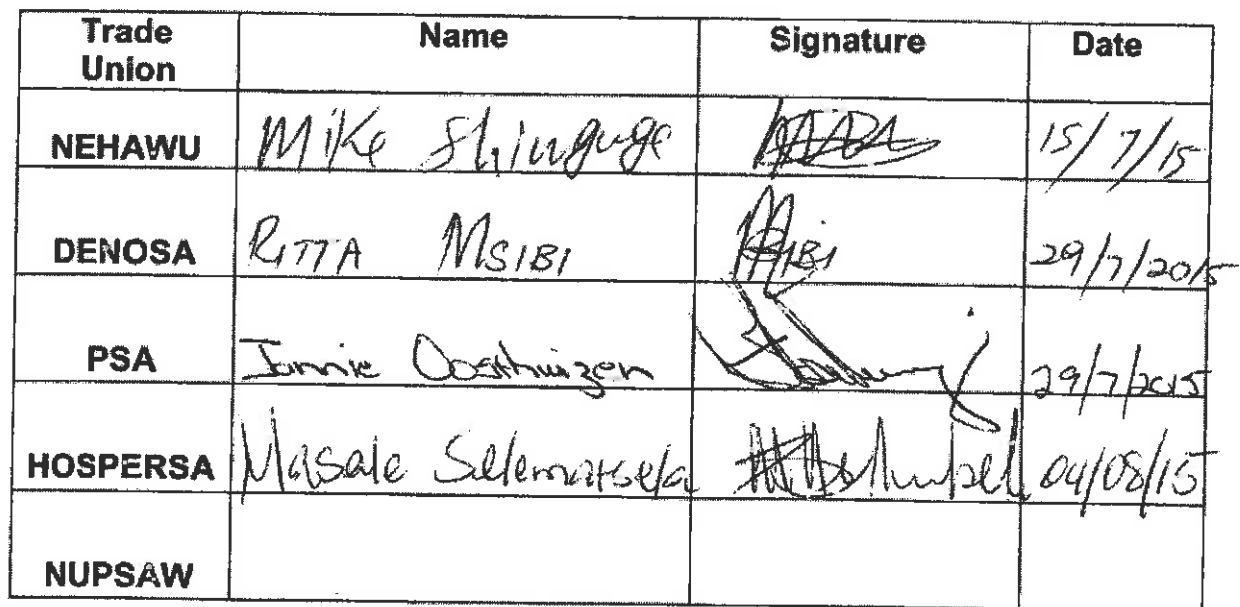 Trade Union Name Signature Date
NEHAWU Mike Shinguge 15/7/15
DENOSA RITTA MSIBI 29/7/2015
PSA Jannie Oosthuizen 29/7/2015
HOSPERSA Masale Selematsela 04/08/15
NUPSAW